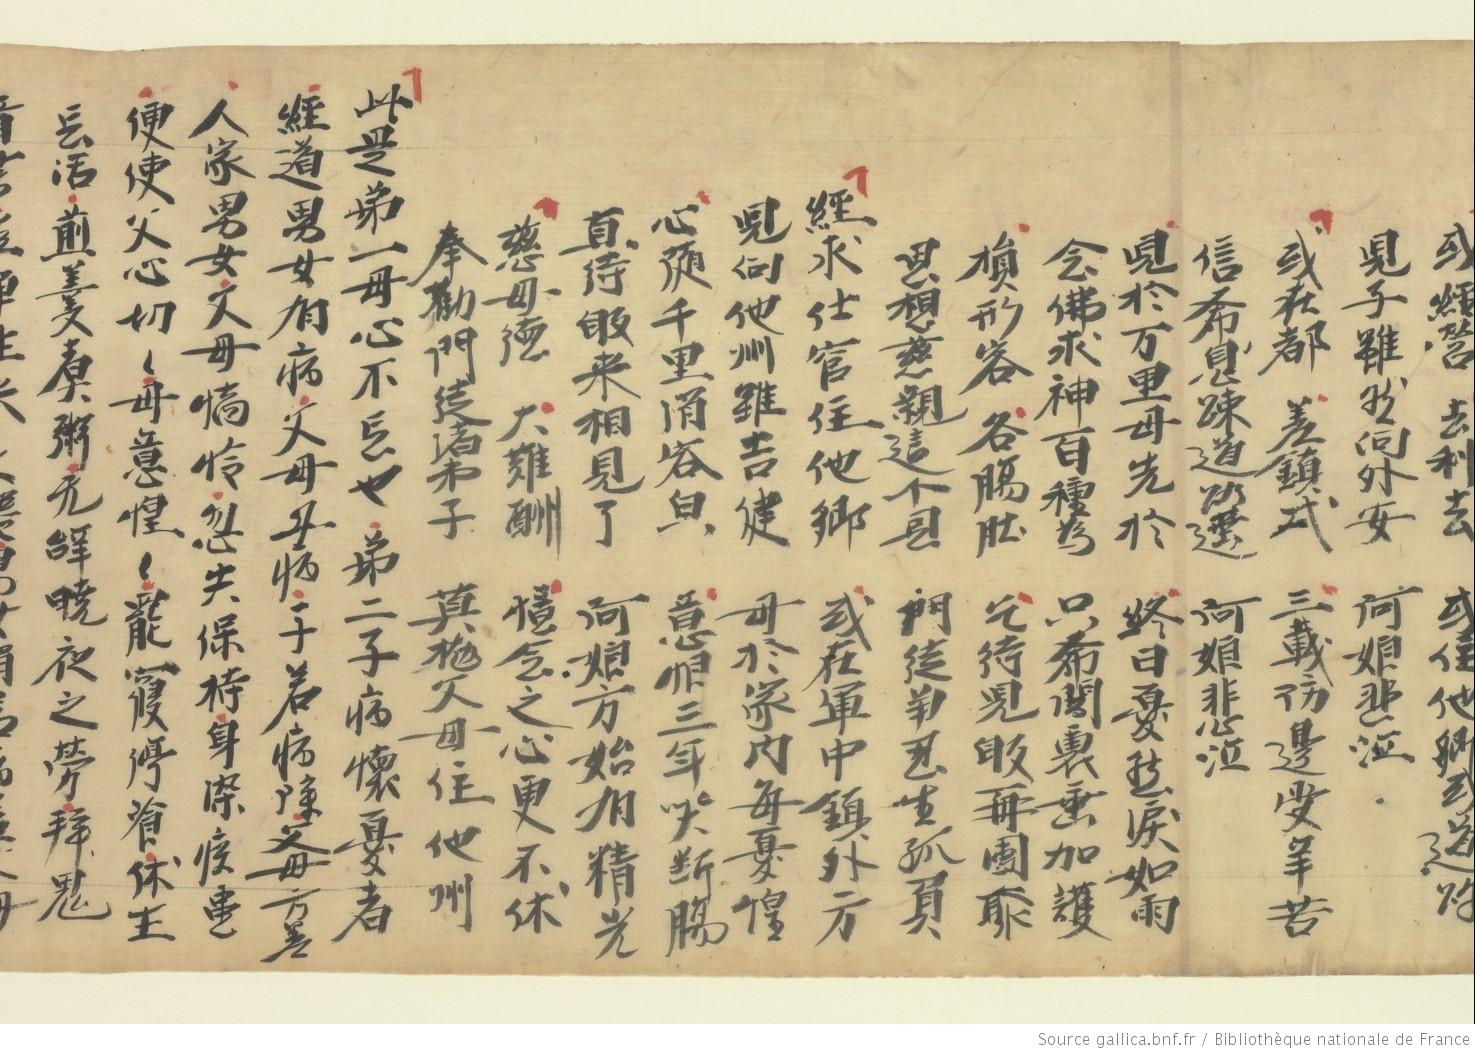 或經營 去利去 或住他鄉或道路
兒子雖然向外安 阿娘悲泣
或在都 差鎮戎 三載防邊受辛苦
信希息踈道路遥 阿娘悲泣
兒於万里母先於 終日憂愁淚如雨
念佛求神百種為 只希闇裏垂加護
損形容 各腸肚 乞待兒敀再團聚
思想慈親這个恩 門徒爭忍生孤負
經求仕官住他鄉 或在軍中鎮外方
兒向他州雖吉健 母於家内每憂惶
心隨千里消容皃 意恨三年哭断腸
直待敀来相見了 阿娘方始有精光
慈母德 大難酬 憶念之心更不休
奉勸門徒諸弟子 莫抛父母住他州
此是弟一母心不忘也 弟二子病懷憂者
經道男女有病父母亦病子若病除父母方差
人家男女父母憍怜忽失保持身染疾患
便使父心切〱母意惶〱寵寢停飡休生
忘活煎羹煮粥无辞曉夜之勞拜鬼